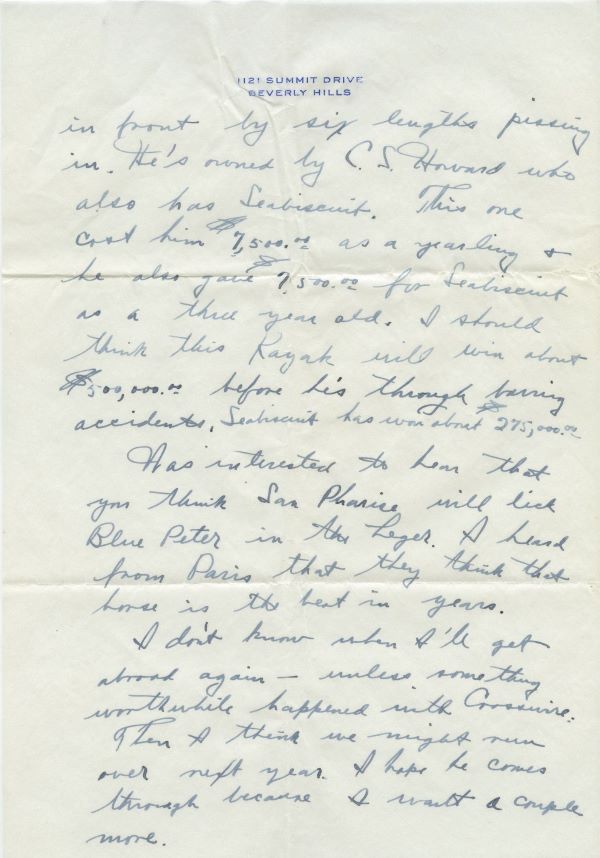 1121 SUMMIT DRIVE
BEVERLY HILLS
in front by six lengths pissing
in. He's owned by C. S. Howard who
also has Seabiscuit. This one
cost him $7,500.00 as a yearling &
he also gave $7500.00 for Seabiscuit
as a three year old. I should
think this Kayak will win about
$500,000.00 before he's through barring
accidents. Seabiscuit has won about $275,000.00
Was interested to hear that
you think San Pharise will lick
Blue Peter in the Leger. I heard
from Paris that they think that
horse is the best in years.
I don't know when I'll get
abroad again - unless something
worthwhile happened with Crosswire.
Then I think we might run
over next year. I hope he comes
through because I want a couple
more.